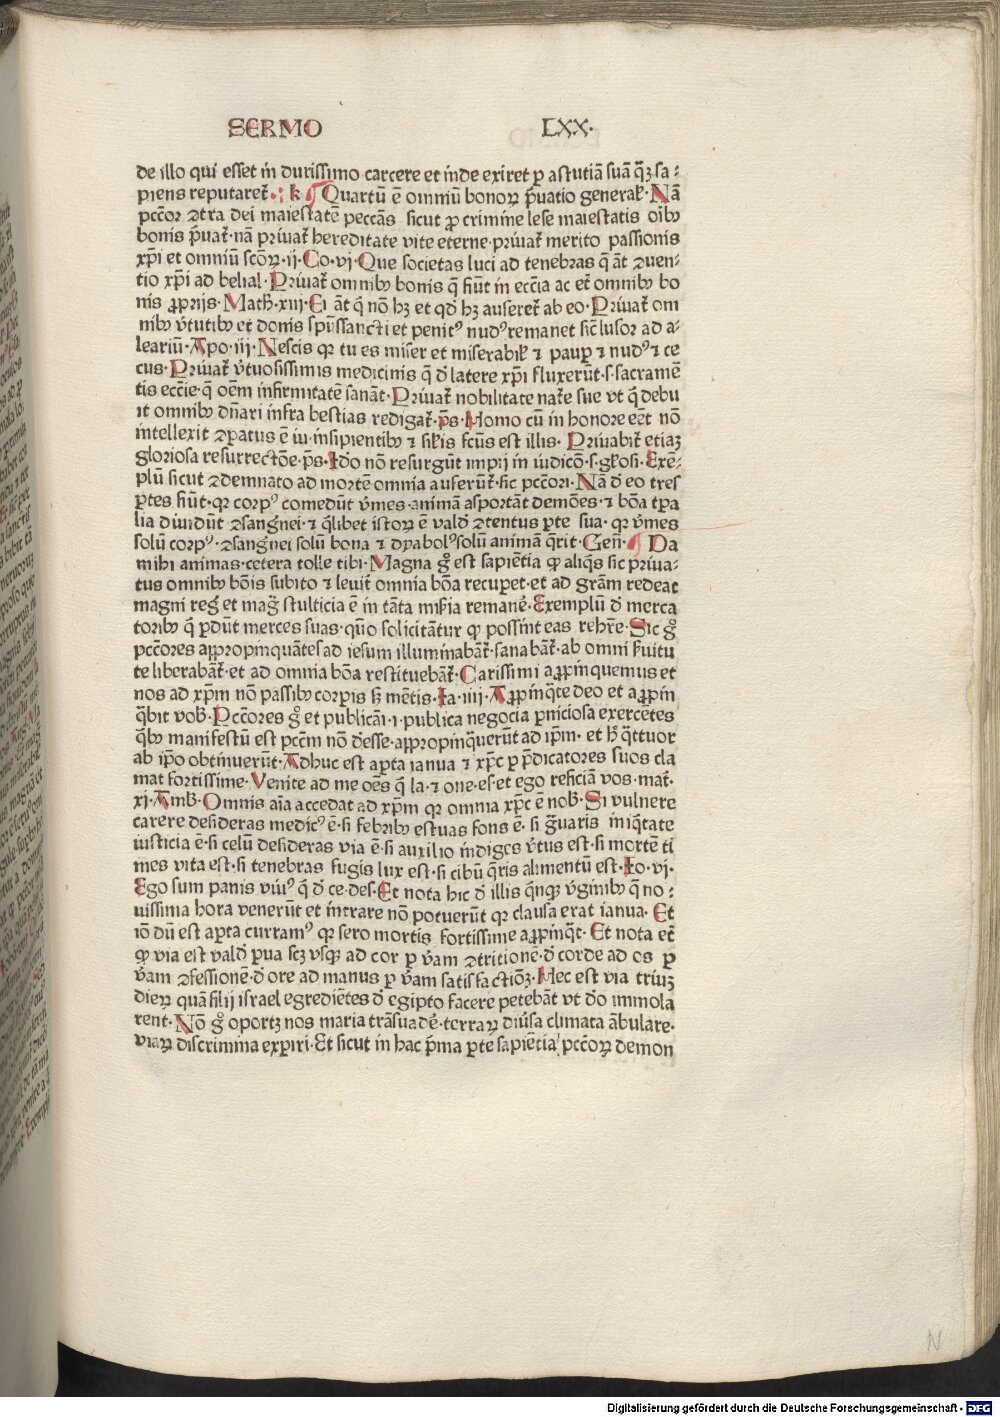 SERMO LXX.
de illo qui esset in durissimo carcere et inde exiret ꝑ astutiā suā q̄ꝫ sa⸗
piens reputaret᷑ k ¶ Quartū ē omniū bonoꝝ p̄uatio general᷑. Nā
pctōr ꝯtra dei maiestatē peccās sicut ꝓ crimine lese maiestatis oīb9
bonis p̄uat᷑. nā priuat᷑ hereditate vite eterne. priuat᷑ merito passionis
xp̄i et omniū sctōꝝ. ij. Co. vj. Que societas luci ad tenebras q̄ āt ꝯuen⸗
tio xp̄i ad belial. Priuat᷑ omnibꝰ bonis q̄ fiūt in eccīa ac et᷑ omnibꝰ bo
nis ꝓprijs. Math. xiij. Ei āt q̄ nō hꝫ et qđ hꝫ auferet᷑ ab eo. Priuat᷑ om
nibꝰ v̄tutibꝰ et donis sp̄ussancti et penitꝰ nudꝰ remanet sic̄ lusor ad a⸗
leariū. Apo. iij. Nescis qꝛ tu es miser et miserabil᷑ ⁊ pauꝑ ⁊ nudꝰ ⁊ ce
cus. Priuat᷑ v̄tuosissimis medicinis q̄ đ latere xp̄i fluxerūt. s. sacramē
tis eccīe. q̄ oēm infirmitatē sanāt. Priuat᷑ nobilitate nat᷑e sue vt q̄ debu
it omnibꝰ dn̄ari infra bestias redigat᷑. ps̄. Homo cū in honore eēt nō
intellexit ꝯpatus ē iu. insipientibꝰ ⁊ sil᷑is fcūs est illis. Priuabit᷑ etiaꝫ
gloriosa resurrectōe. ps̄. Ido nō resurgūt impij in iudicō. s. gl᷑osi. Exē⸗
plū sicut ꝯdemnato ad mortē omnia auferūt᷑. sic pctōri. Nā đ eo tres
ꝑtes fiūt. qꝛ corpꝰ comedūt v̄mes. animā asportāt demōes. ⁊ bōa tp̄a
lia diuidūt ꝯsangnei. ⁊ q̄libet istoꝝ ē valđ ꝯtentus ꝑte sua. qꝛ v̄mes
solū corpꝰ. ꝯsangnei solū bona ⁊ dyabolꝰ solū animā q̄rit. Gen̄. ¶ Da
mihi animas. cetera tolle tibi. Magna g° est sapiētia ꝙ aliq̄s sic priua⸗
tus omnibꝰ bōis subito ⁊ leuit᷑ omnia bōa recuꝑet. et ad grām redeat
magni reg᷑ et mag᷑ stulticia ē in tāta mis᷑ia remane᷑. Exemplū đ merca
toribꝰ q̄ ꝑdūt merces suas. quō solicitāt᷑ur ꝙ possint eas reh᷑re. Sic g°
pctōres appropinquātes ad iesum illuminabāt᷑. sanabāt᷑. ab omni s᷑uitu
te liberabāt᷑. et ad omnia bōa restituebāt᷑. Carissimi aꝓpinquemus et
nos ad xp̄m nō passibꝰ corꝑis sꝫ mētis. Ia. iiij. Aꝓpinq̄te deo et aꝓpin
q̄bit vob᷑. Pctōres g° et publicāi. i. publica negocia ꝑniciosa exercētes
q̄bꝰ manifestū est pctm̄ nō đesse. appropinq̄uerūt ad ip̄m. et h° q̄ttuor
ab ip̄o obtinuerūt. Adhuc est aꝑta ianua ⁊ xp̄c ꝑ p̄dicatores suos cla
mat fortissime. Venite ad me oēs q̄ la. ⁊ one. es. et ego reficiā vos. mat᷑.
xj. Amb᷑. Omnis aīa accedat ad xp̄m qꝛ omnia xp̄c ē nob᷑. Si vulnere
carere desideras medicꝰ ē. si febribꝰ estuas fons ē. si g᷑uaris iniq̄tate
iusticia ē. si celū desideras via ē. si auxilio indiges v̄tus est. si mortē ti
mes vita est. si tenebras fugis lux est. si cibū q̄ris alimentū est. Io. vj.
Ego sum panis viuꝰ q̄ đ ce. des. Et nota hic đ illis q̄nqꝫ v̄ginibꝰ q̄ no⸗
uissima hora venerūt et intrare nō potuerūt qꝛ clausa erat ianua. Et
iō dū est aꝑta curramꝰ qꝛ sero mortis fortissime aꝓpinq̄t. Et nota et᷑
ꝙ via est valđ ꝑua scꝫ vsqꝫ ad cor ꝑ v̄am ꝯtritionē. đ corde ad os ꝑ
v̄am ꝯfessionē. đ ore ad manus ꝑ v̄am satisfactiōꝫ. Hec est via triuꝫ
dieꝝ quā filij israel egrediētes đ egipto facere petebāt vt đo immola
rent. Nō g° oportꝫ nos maria trāsuađe. terraꝝ diu᷑sa climata ābulare.
viaꝝ discrimina exꝑiri. Et sicut in hac p̄ma ꝑte sapiētia pctōꝝ demon
N
Digitalisierung gefördert durch die Deutsche Forschungsgemeinschaft - DFG